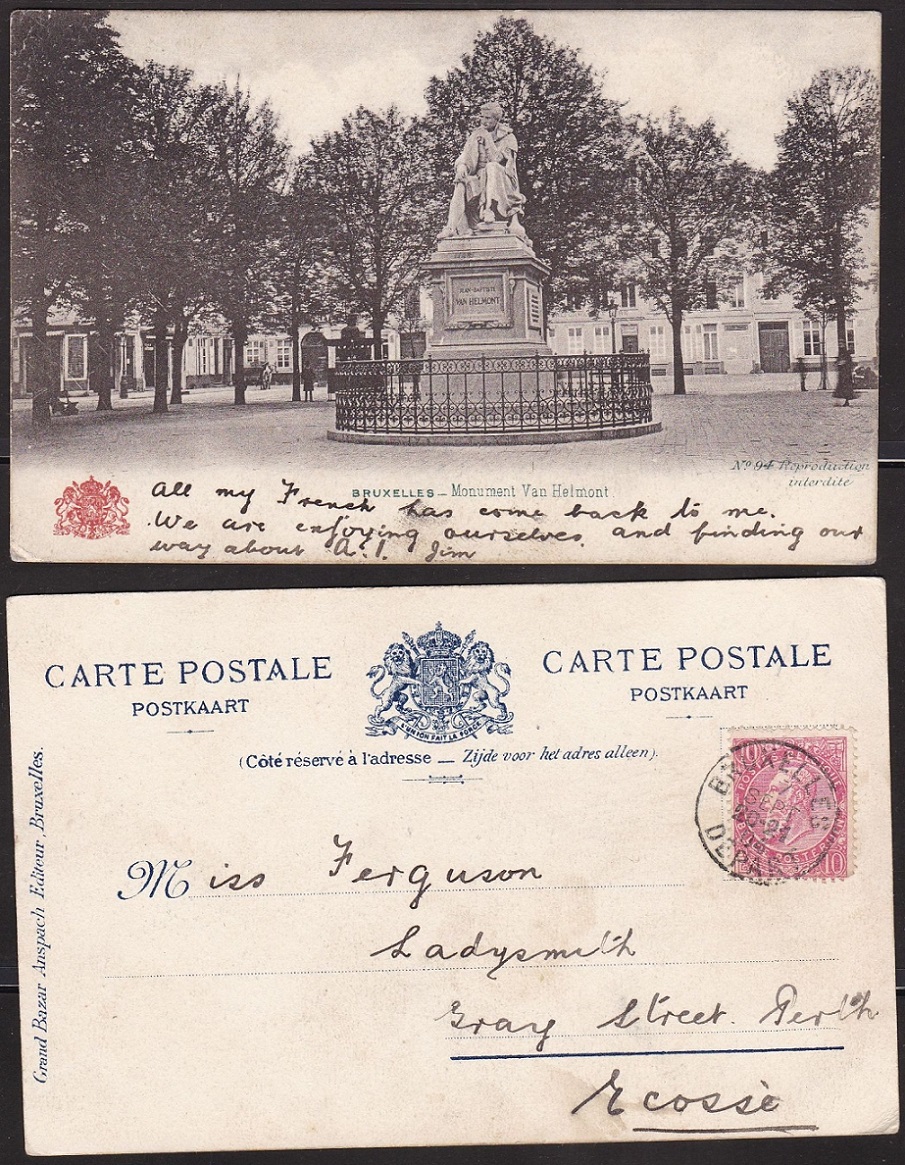 JEAN-BAPTISTE
VAN HELMONT
Nº 94 Reproduction
interdite
BRUXELLES – Monument Van Helmont.
All my French has come back to me.
We are enjoying ourselves, and finding our
way about A.1. Jim
CARTE POSTALE
POSTKAART
L'UNION FAIT LA FORCE
CARTE POSTALE
POSTKAART
(Côté réservé à l'adresse — Zijde voor het adres alleen).
10
10
BRUXELLES
7
SEPT
DEPART
Miss Ferguson
Ladysmith
Gray Street. Perth
Ecosse
Grand Bazar Anspach Editeur, Bruxelles.